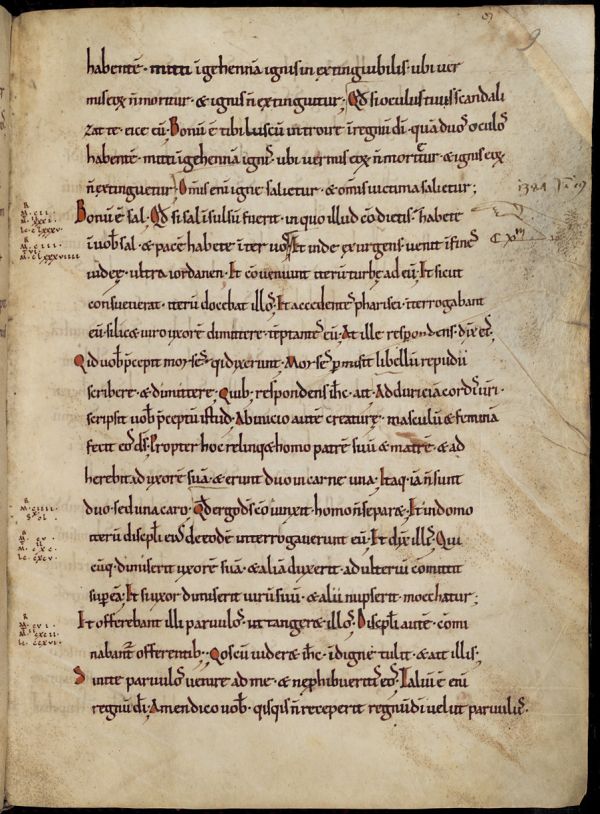 habentē mitti ī gehennā ignis inextinguibilis · ubi ver
mis eoꝝ n̄ moritur · & ignis n̄ extinguitur ; Qd̄ si oculus tuus scandali
zat te · eice eū · Bonū ē tibi luscū introire ī regnū dī · quā duoˢ oculoˢ
habentē mitti ī gehennā ignis · ubi vermis eoꝝ n̄ morit̄ · & ignis eoꝝ
n̄ extinguetur · Omnis enī igne salietur · & om̄is uictima salietur ;
Bonū ē sal · Qd̄ si sal īsulsū fuerit · in quo illud cōdietis · habete
ī uob̄ sal · & pacē habete īter uoˢ · Et inde exurgens · uenit ī fineˢ
iudeę · ultra iordanen · Et cōueniunt iterū turbę ad eū · Et sicut
consueuerat · iterū docebat illoˢ · Et accedenteˢ pharisei · īterrogabant
eū · si licet uiro uxorē dimittere · tēptanteˢ eū · At ille respondens · dix̄ eiˢ ·
Qid uob̄ p̄cepit moyseˢ · qi dixerunt · Moyseˢ p̄misit libellū repudii
scribere · & dimittere · Quib; respondens ih̄c · ait · Ad duriciā cordiˢ ur̄i ·
scripsit uob̄ p̄ceptū istud · Ab inicio autē creaturę · masculū & feminā
fecit eoˢ dˢ · Propter hoc relinq& homo patrē suū & matrē · & ad
herebit ad uxorē suā · & erunt duo in carne una · Itaq; iā n̄ sunt
duo · sed una caro · Qd̄ ergo dˢ cōiunxit · homo n̄ separ& · Et ī domo
iterū discipl̄i eiˢ de eodē interrogauerunt eū · Et dix̄ illiˢ · Qui
cūq; dimiserit uxorē suā · & aliā duxerit · adulteriū comittit
sup eā · Et si uxor dimiserit uirū suū · & alii nupserit · mœchatur ;
Et offerebant illi paruuloˢ · ut tanger& illoˢ · Discipl̄i autē · cōmi
nabant̄ offerentib; · Qos cū uider& ih̄c · īdigne tulit · & ait illis ·
Sinite paruuloˢ uenire ad me · & ne p̄hibueritiˢ eoˢ · Taliū ē enī
regnū dī · Amen dico uob̄ · qisqis n̄ receperit regnū dī uelut paruuluˢ ·